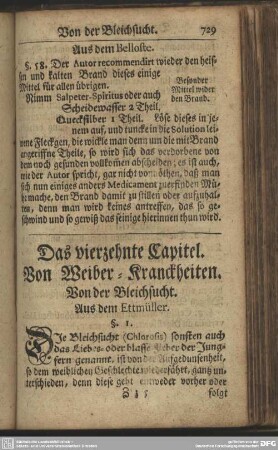 Von der Bleichsucht. 729
Aus dem Belloste.
§. 58. Der Autor recommendirt wieder den heis-
sen und kalten Brand dieses einige
Mittel für allen übrigen.
Besonder
Mittel wider
den Brand.
Nimm Salpeter-Spiritus oder auch
Scheidewasser 2 Theil.
Quecksilber 1 Theil. löse dieses in je-
nem auf, und tuncke in die Solution leine
ne Fleckgen, die wickle man denn um die mit Brand
angeriffne Theile, so wird sich das verdorbene von
dem noch gesunden vollkommen abscheiden; es ist auch,
wieder Autor spricht, gar nicht vonnöthen, daß man
sich nun einiges anders Medicament zuerfinden Mü-
he mache, den Brand damit zu stillen oder aufzuhal-
ten, denn man wird keines antreffen, das so ge-
schwind und so gewiß das seinige hierinnen thun wird.
Das vierzehnte Capitel.
Von Weiber-Kranckheiten.
Von der Bleichsucht.
Aus dem Ettmüller.
§. 1.
Die Bleichsucht (Chlorosis) sonsten auch
das Liebes- oder blasse Fieber der Jung-
fern genannt, ist von der Aufgedunsenheit,
so dem weiblichen Geschlechte wiederfährt, gantz un-
terschieden, denn diese gehet entweder vorher oder
folgt